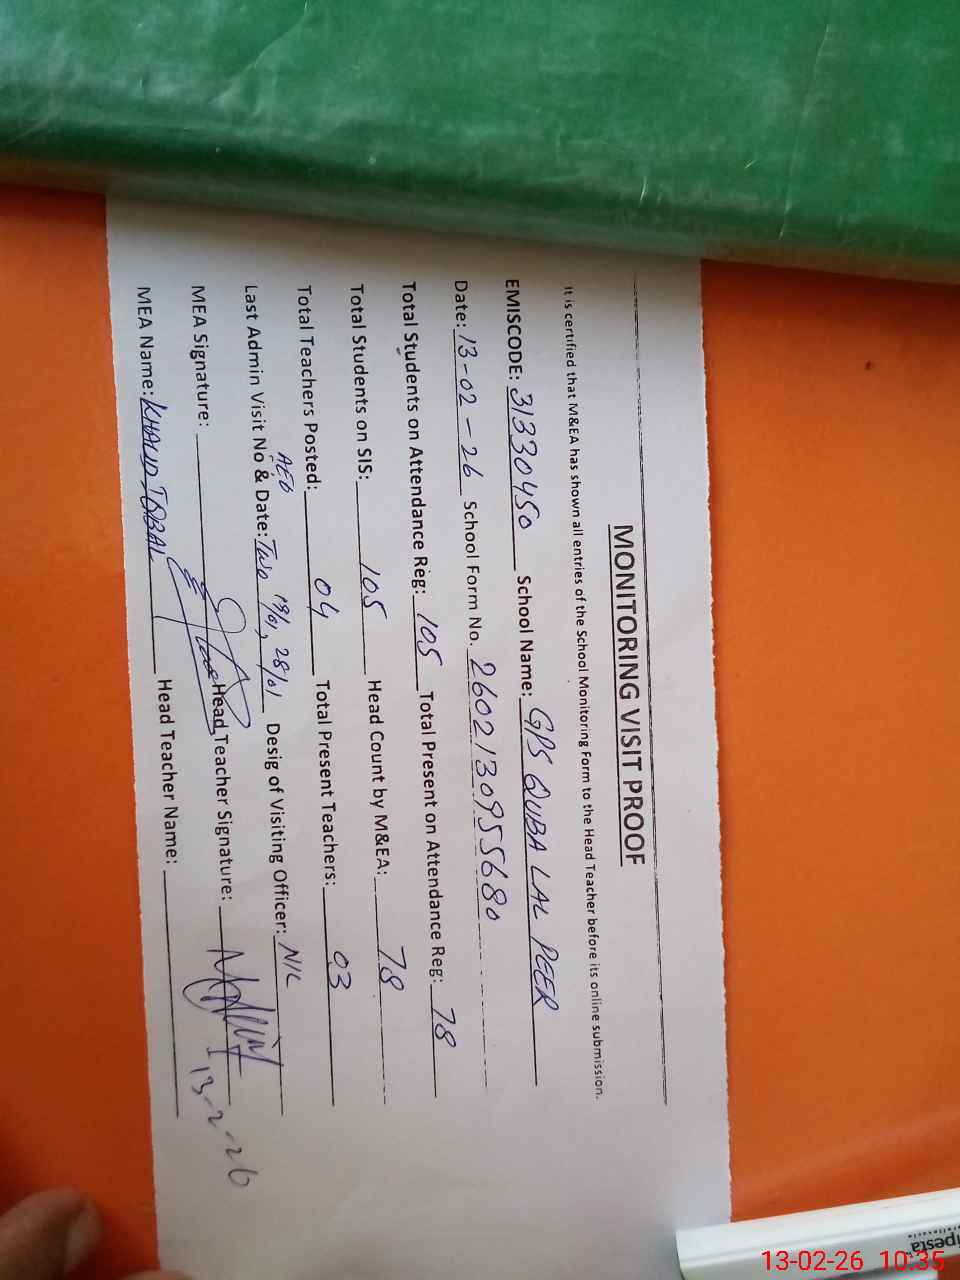 MONITORING VISIT PROOF
It is certified that M&EA has shown all entries of the School Monitoring Form to the Head Teacher before its online submission.
EMISCODE: 31330450 School Name: GPS QUBA LAL PEER
Date: 13-02-26 School Form No. 2602130955680
Total Students on Attendance Reg: 105 Total Present on Attendance Reg: 78
Total Students on SIS: 105 Head Count by M&EA: 78
Total Teachers Posted: 04 Total Present Teachers: 03
AEO
Last Admin Visit No & Date: Two 19/01, 28/01 Desig of Visiting Officer: NIL
MEA Signature: Head Teacher Signature: 13-2-26
MEA Name: KHALID IQBAL Head Teacher Name:
ipesta
13-02-26 10:35